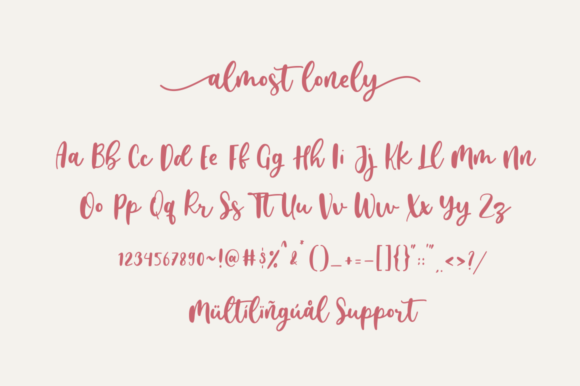 almost lonely
Aa Bb Cc Dd Ee Ff Gg Hh Ii Jj Kk Ll Mm Nn
Oo Pp Qq Rr Ss Tt Uu Vv Ww Xx Yy Zz
1234567890~!@#$%^&*()_+=-[]{}"::'",.<>?/
Mültilïñgúål Support